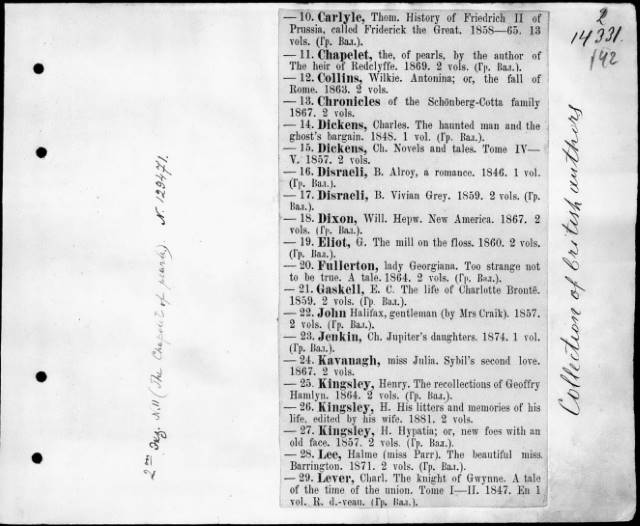 — 10. Carlyle, Thom. History of Friedrich II of
Prussia, called Friderick the Great. 1858—65. 13
vols. (Гр. Вал.).
— 11. Chapelet, the, of pearls, by the author of
The heir of Redclyffe. 1869. 2 vols. (Гр. Вал.).
— 12. Collins, Wilkie. Antonina; or, the fall of
Rome. 1863. 2 vols.
— 13. Chronicles of the Schönberg-Cotta family
1867. 2 vols.
— 14. Dickens, Charles. The haunted man and the
ghost's bargain. 1848. 1 vol. (Гр. Вал.).
— 15. Dickens, Ch. Novels and tales. Tome IV—
V. 1857. 2 vols.
— 16. Disraeli, B. Alroy, a romance. 1846. 1 vol.
(Гр. Вал.).
— 17. Disraeli, B. Vivian Grey. 1859. 2 vols. (Гр.
Вал.).
— 18. Dixon, Will. Hepw. New America. 1867. 2
vols. (Гр. Вал.).
— 19. Eliot, G. The mill on the floss. 1860. 2 vols.
(Гр. Вал.).
— 20. Fullerton, lady Georgiana. Too strange not
to be true. A tale. 1864. 2 vols. (Гр. Вал.).
— 21. Gaskell, E. C. The life of Charlotte Brontë.
1859. 2 vols. (Гр. Вал.).
— 22. John Halifax, gentleman (by Mrs Craik). 1857.
2 vols. (Гр. Вал.).
— 23. Jenkin, Ch. Jupiter's daughters. 1874. 1 vol.
(Гр. Вал.).
— 24. Kavanagh, miss Julia. Sybil's second love.
1867. 2 vols.
— 25. Kingsley, Henry. The recollections of Geoffry
Hamlyn. 1864. 2 vols. (Гр. Вал.).
— 26. Kingsley, H. His litters and memories of his
life, edited by his wife. 1881. 2 vols.
— 27. Kingsley, H. Hypatia; or, new foes with an
old face. 1857. 2 vols. (Гр. Вал.).
— 28. Lee, Halme (miss Parr). The beautiful miss.
Barrington. 1871. 2 vols. (Гр. Вал.).
— 29. Lever, Charl. The knight of Gwynne. A tale
of the time of the union. Tome I—II. 1847. En 1
vol. R. d.-veau. (Гр. Вал.).
2
14331
/42
Collection of british authors
N 11 (The Chapelet of pearls) N 129471.